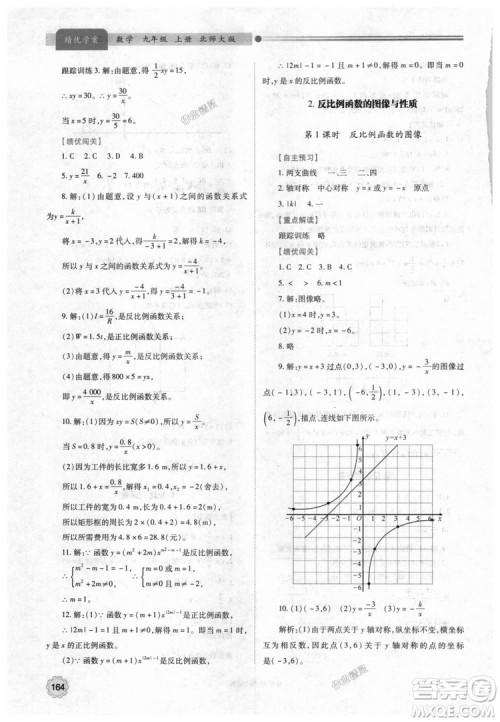 绩优学案 数学 九年级 上册 北师大版
跟踪训练 3. 解:由题意,得 1/2 xy=15,
∴ xy=30, ∴ y=30/x.
当 x=5 时, y=30/5=6.
【绩优闯关】
1. C 2. C 3. B 4. C 5. C 6. B
7. y=21/x -6
8. 解:(1)由题意,可设 y 与 x 之间的函数关系式
为 y=k/(x+1).
将 x=-3, y=2 代入,得 2=k/(-3+1), ∴ k=-4.
所以 y 与 x 之间的函数关系式为 y=-4/(x+1).
(2)将 x=3 代入 y=-4/(x+1), 得 y=-4/(3+1)=-1.
9. 解:(1)I=16/R, 是反比例函数关系;
(2)W=1.5t, 是正比例函数关系;
(3)由题意,得 800×5=xy,
即 y=4 000/x, 是反比例函数关系.
10. 解:(1)由题意,得 xy=S, ∴ y=S/x.
当 S=0.8 时, y=0.8/x(x>0).
(2)因为工件的长比宽多 1.6 m, 所以
1.6+x=0.8/x, 解得 x₁=0.4, x₂=-2(舍去),
所以工件的宽为 0.4 m, 长为 2 m,
所以矩形框的周长为 4.8 m,
所以所需费用为 4.8×6=28.8(元).
11. 解:∵ 函数 y=(m²-m)x^(m²-m-1) 是反比例函数,
∴ { m²-m-1=-1, m²+m≠0.
∴ m=1.
12. 解:(1)∵ 函数 y=(m²+m)x^(|2m|-1) 是正比例函数,
∴ |2m|-1=1, 且 m²+m≠0, 解得 m=1, 即当 m=1
时, y 是 x 的正比例函数.
(2)∵ 函数 y=(m²+m)x^(|2m|-1) 是反比例函数,
164
∴ |2m|-1=-1, 且 m²+m≠0, 此时 m 无解,
即 y 不可能是 x 的反比例函数.
2. 反比例函数的图像与性质
第 1 课时 反比例函数的图像
【自主预习】
1. 两支曲线 一、三 二、四
2. 轴对称 中心对称 y=x y=-x 原点
3. |k|
【重点解读】
跟踪训练 略
【绩优闯关】
1. C 2. C 3. A 4. C
5. > < 6. m>1
7. 解:图像略.
(1)x=4 时, y=1.
(2)x=3.
9. 解:y=x+3 过点(-3,0),(0,3), y=-3/x 的图像过
点(-1,3),(1,-3),(-6,1/2),(3,-1),(-3,1),
(6,-1/2), 描点、连线如下图所示.
y y=x+3
10. (1)(-3,6) (2)y=-3/x y=-6/x
解析:(1)由于两点关于 y 轴对称, 纵坐标不
变, 横坐标互为相反数, 故点(3,6)关于 y 轴对称的点
的坐标是(-3,6).
答案圈
MXQE.COM